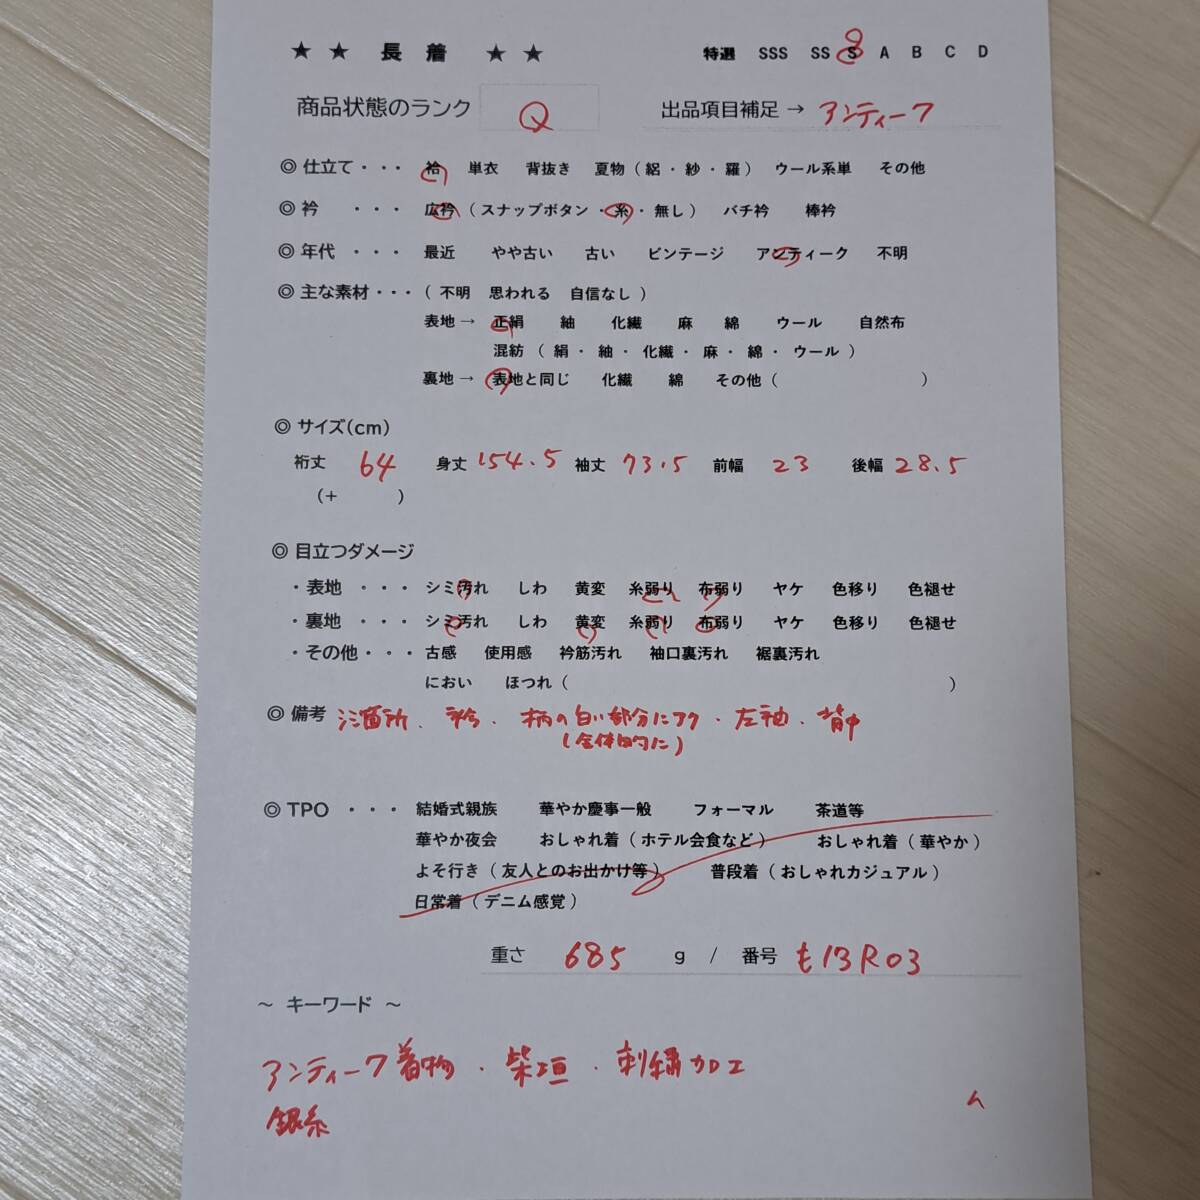 ★ ★ 長 着 ★ ★ 特選 SSS SS S A B C D
商品状態のランク Q 出品項目補足 → アンティーク
◎ 仕立て・・・ 袷 単衣 背抜き 夏物（絽・紗・羅） ウール系単 その他
◎ 衿 ・・・ 広衿（スナップボタン・糸・無し） バチ衿 棒衿
◎ 年代 ・・・ 最近 やや古い 古い ビンテージ アンティーク 不明
◎ 主な素材・・・（不明 思われる 自信なし）
表地 → 正絹 紬 化繊 麻 綿 ウール 自然布
混紡（絹・紬・化繊・麻・綿・ウール）
裏地 → 表地と同じ 化繊 綿 その他（ ）
◎ サイズ(cm)
裄丈 64 身丈 154.5 袖丈 73.5 前幅 23 後幅 28.5
（+ ）
◎ 目立つダメージ
・表地 ・・・ シミ汚れ しわ 黄変 糸弱り 布弱り ヤケ 色移り 色褪せ
・裏地 ・・・ シミ汚れ しわ 黄変 糸弱り 布弱り ヤケ 色移り 色褪せ
・その他・・・ 古感 使用感 衿筋汚れ 袖口裏汚れ 裾裏汚れ
におい ほつれ（ ）
◎ 備考 箇所、衿・柄の白い部分にアク・左袖・背中
（全体的に）
◎ TPO ・・・ 結婚式親族 華やか慶事一般 フォーマル 茶道等
華やか夜会 おしゃれ着（ホテル会食など） おしゃれ着（華やか）
よそ行き（友人とのお出かけ等） 普段着（おしゃれカジュアル）
日常着（デニム感覚）
重さ 685 g / 番号 も13R03
～ キーワード ～
アンティーク着物・柴垣・刺繍加工
銀糸
ム